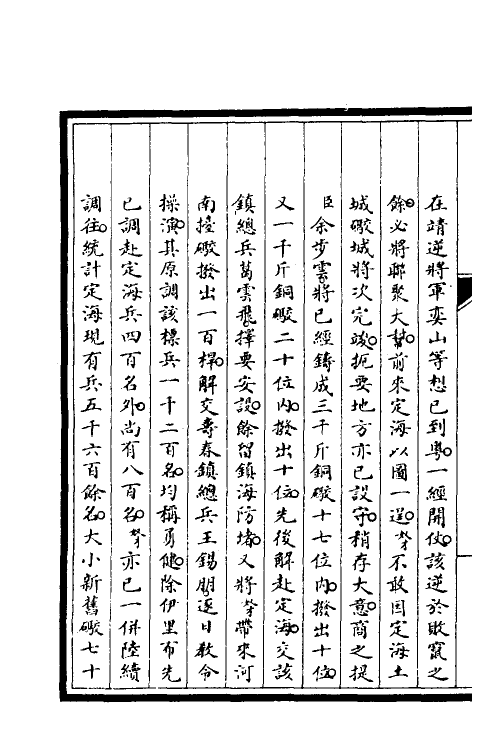 在靖逆將軍奕山等想已到粵一經開仗該逆於敗竄之
餘必將聯聚大幫前來定海以圖一逞等不敢因定海土
城礮城將次完竣扼要地方亦已設守稍存大意商之提
臣余步雲將已經鑄成三千斤銅礮十七位內撥出十位
又一千斤銅礮二十位內撥出十位先後解赴定海交該
鎮總兵葛雲飛擇要安設餘留鎮海防堵又將等帶來河
南擡礮撥出一百桿解交壽春鎮總兵王錫朋逐日教令
操演其原調該標兵一千二百名均稱勇健除伊里布先
已調赴定海兵四百名外尚有八百名等亦已一併陸續
調往統計定海現有兵五千六百餘名大小新舊礮七十